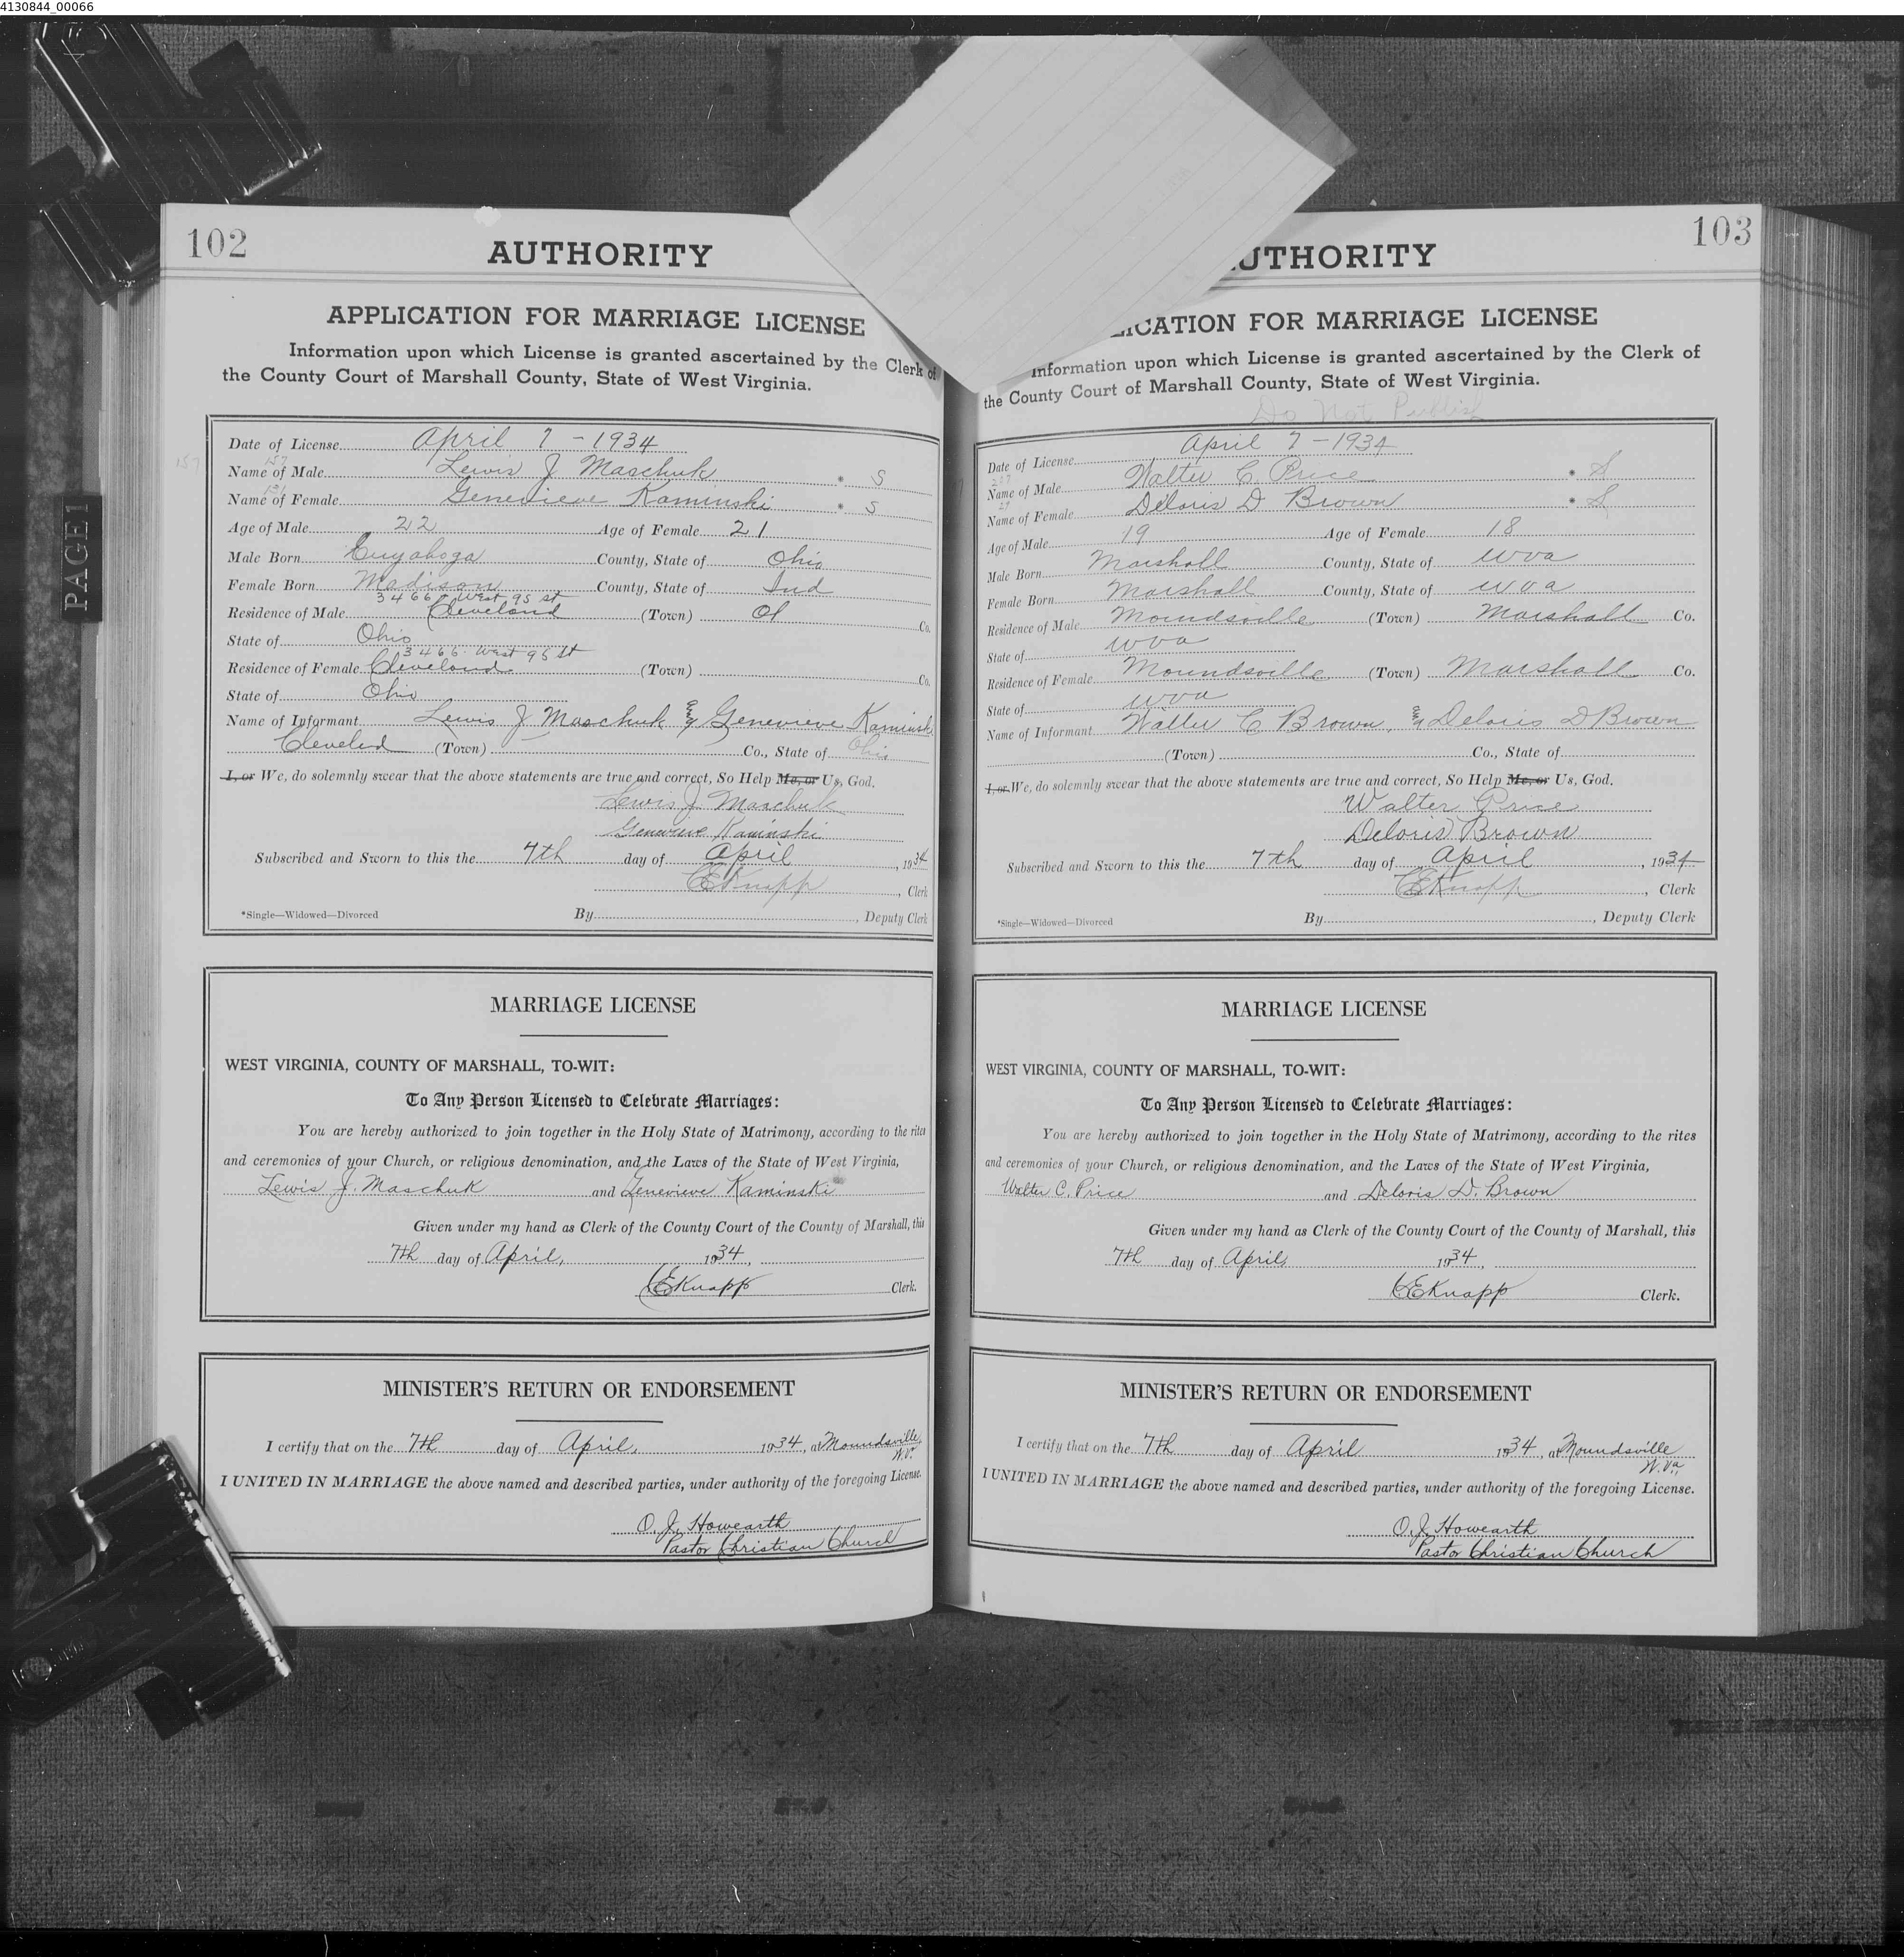 4130844_00066
PAGE 1
102
AUTHORITY
APPLICATION FOR MARRIAGE LICENSE
Information upon which License is granted ascertained by the Clerk of
the County Court of Marshall County, State of West Virginia.
Date of License April 7-1934
157
Name of Male Lewis J Maschuk * S
Name of Female Genevieve Kaminski * S
Age of Male 22 Age of Female 21
Male Born Cuyahoga County, State of Ohio
Female Born Madison County, State of Ind
3466 West 95 st
Residence of Male Cleveland (Town) Co.
State of Ohio
3466 West 95 St
Residence of Female Cleveland (Town) Co.
State of Ohio
Name of Informant Lewis J Maschuk & Genevieve Kaminsk
Cleveled (Town) Co., State of Ohio
I, or We, do solemnly swear that the above statements are true and correct, So Help Me, or Us, God.
Lewis J. Maschuk
Genevieve Kaminski
Subscribed and Sworn to this the 7th day of April, 1934
CEKnapp, Clerk
*Single—Widowed—Divorced By, Deputy Clerk
MARRIAGE LICENSE
WEST VIRGINIA, COUNTY OF MARSHALL, TO-WIT:
To Any Person Licensed to Celebrate Marriages:
You are hereby authorized to join together in the Holy State of Matrimony, according to the rites
and ceremonies of your Church, or religious denomination, and the Laws of the State of West Virginia,
Lewis J. Maschuk and Genevieve Kaminski
Given under my hand as Clerk of the County Court of the County of Marshall, this
7th day of April, 1934,
CEKnapp Clerk.
MINISTER'S RETURN OR ENDORSEMENT
I certify that on the 7th day of April, 1934, at Moundsville,
W.V.
I UNITED IN MARRIAGE the above named and described parties, under authority of the foregoing License.
O. J. Howearth
Pastor Christian Church
103
UTHORITY
LICATION FOR MARRIAGE LICENSE
Information upon which License is granted ascertained by the Clerk of
the County Court of Marshall County, State of West Virginia.
Do Not Publish
Date of License April 7-1934
Name of Male Walter C. Price * S
Name of Female Deloris D Brown * S
Age of Male 19 Age of Female 18
Male Born Marshall County, State of wva
Female Born Marshall County, State of wva
Residence of Male Moundsville (Town) Marshall Co.
State of wva
Residence of Female Moundsville (Town) Marshall Co.
State of wva
Name of Informant Walter C Brown, & Deloris D Brown
(Town) Co., State of
I, or We, do solemnly swear that the above statements are true and correct, So Help Me, or Us, God.
Walter Price
Deloris Brown
Subscribed and Sworn to this the 7th day of April, 1934
CEKnapp, Clerk
*Single—Widowed—Divorced By, Deputy Clerk
MARRIAGE LICENSE
WEST VIRGINIA, COUNTY OF MARSHALL, TO-WIT:
To Any Person Licensed to Celebrate Marriages:
You are hereby authorized to join together in the Holy State of Matrimony, according to the rites
and ceremonies of your Church, or religious denomination, and the Laws of the State of West Virginia,
Walter C. Price and Deloris D. Brown
Given under my hand as Clerk of the County Court of the County of Marshall, this
7th day of April, 1934,
CEKnapp Clerk.
MINISTER'S RETURN OR ENDORSEMENT
I certify that on the 7th day of April 1934, at Moundsville
W. Va.,
I UNITED IN MARRIAGE the above named and described parties, under authority of the foregoing License.
O. J. Howearth
Pastor Christian Church